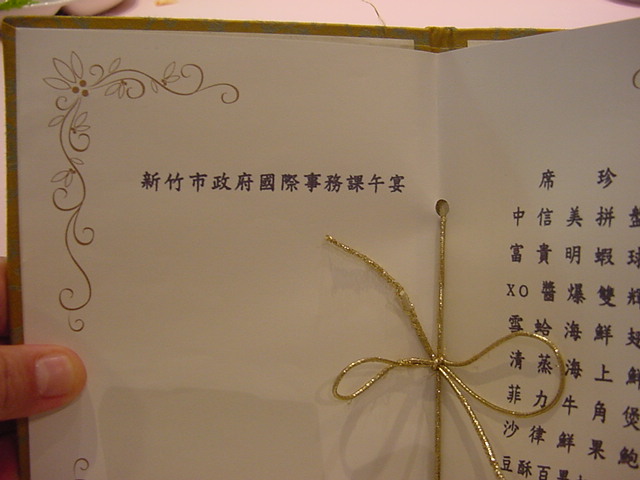 新竹市政府國際事務課午宴
席 珍
中信美拼盤
富貴明蝦球
XO醬爆雙輝
雪蛤海鮮翅
清蒸海上鮮
菲力牛角煲
沙律鮮果鮑
豆酥百果